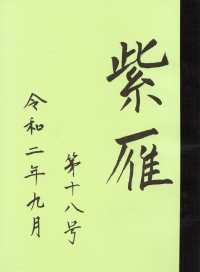 紫雁
第十八号
令和二年九月